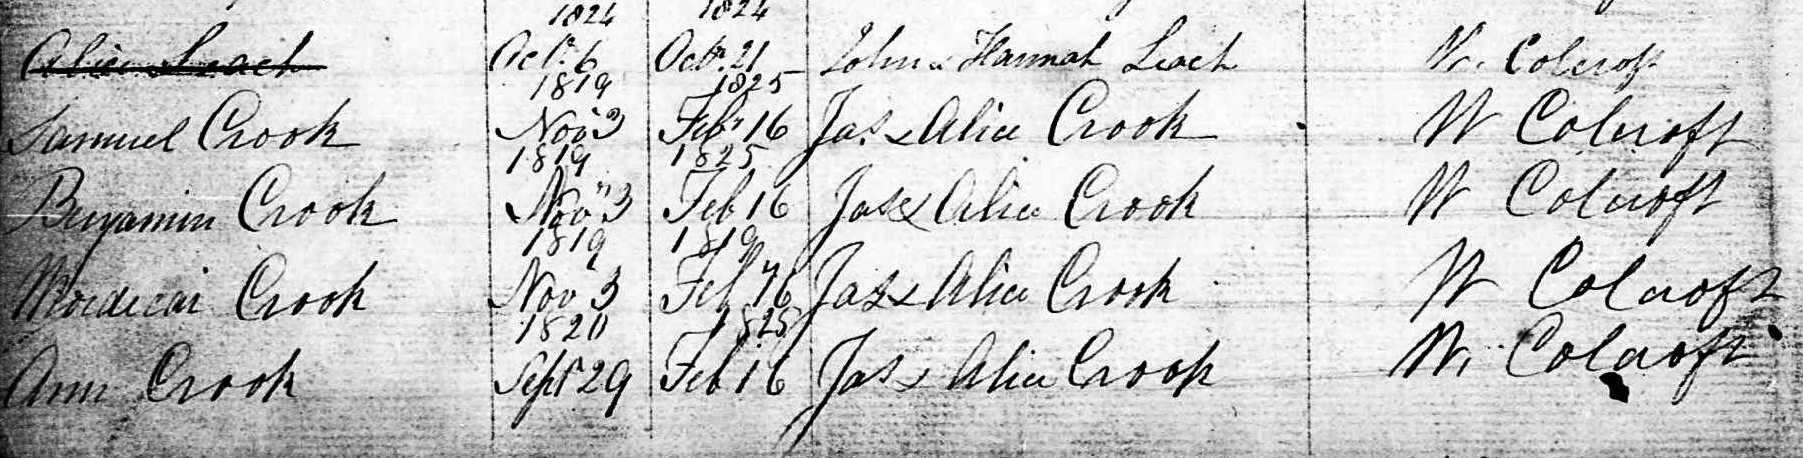 1824 1824
Alice Leach Octr. 6 Octr. 21 John & Hannah Leach W. Colcroft
1819 1825
Samuel Crook Novr 3 Feby 16 Jas & Alice Crook W Colcroft
1819 1825
Benjamin Crook Novr 3 Feb 16 Jas & Alice Crook W Colcroft
1819 1819
Mordecai Crook Novr 3 Feby 16 Jas & Alice Crook W Colcroft
1820 1825
Ann Crook Sept 29 Feb 16 Jas & Alice Crook W. Colcroft